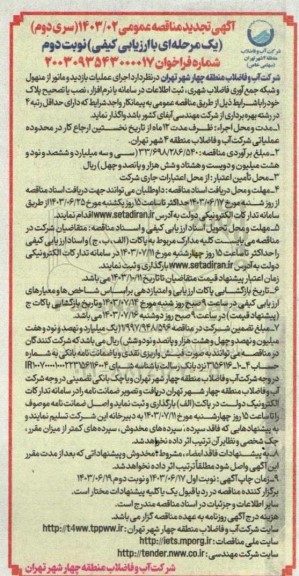 شرکت آب و فاضلاب
منطقه ۴ شهر تهران
(سهامی خاص)
آگهی تجدید مناقصه عمومی ۱۴۰۳/۰۲ (سری دوم)
(یک مرحله‌ای با ارزیابی کیفی) نوبت دوم
شماره فراخوان ۲۰۰۳۰۹۳۵۴۳۰۰۰۰۱۷
شرکت آب و فاضلاب منطقه چهار شهر تهران در نظر دارد اجرای عملیات بازدید و مانور از منهول
و شبکه جمع آوری فاضلاب شهری، ثبت اطلاعات در سامانه یا نرم افزار، نصب یا تصحیح پلاک
خود را با شرایط ذیل از طریق مناقصه عمومی به پیمانکار واجد شرایط که دارای حداقل رتبه ۴
در رشته بهره برداری از شرکت مهندسی آبفای کشور باشد واگذار نماید.
۱-مدت و محل اجراء: ظرف مدت ۱۲ ماه از تاریخ نخستین ارجاع کار در محدوده
عملیاتی شرکت آب و فاضلاب منطقه ۴ شهر تهران.
۲-مبلغ برآوردی مناقصه: ۳۳/۶۹۸/۲۸۶/۵۴۰ (سی و سه میلیارد و ششصد و نود و
هشت میلیون و دویست و هشتاد و شش هزار و پانصد و چهل) ریال
۳-محل تأمین اعتبار: از محل اعتبارات جاری شرکت
۴-مهلت و محل دریافت اسناد مناقصه: داوطلبان می توانند جهت دریافت اسناد مناقصه
از روز شنبه مورخ ۱۴۰۳/۰۶/۱۷ حداکثر تا ساعت ۱۵ روز یکشنبه مورخ ۱۴۰۳/۰۶/۲۵ از طریق
سامانه تدارکات الکترونیکی دولت به آدرس www.setadiran.ir اقدام نمایند.
۵-مهلت و محل تحویل اسناد ارزیابی کیفی و اسناد مناقصه: متقاضیان شرکت در
مناقصه می بایست کلیه مدارک مربوط به پاکات (الف، ب، ج) و اسناد ارزیابی کیفی
را حداکثر تا ساعت ۱۵ روز چهارشنبه مورخ ۱۴۰۳/۰۷/۱۱ در سامانه تدارکات الکترونیکی
دولت به آدرس www.setadiran.ir بارگذاری و ثبت نمایند.
زمان اعتبار پیشنهاد قیمت متقاضیان تا تاریخ ۱۴۰۳/۱۰/۱۱ می باشد.
۶-تاریخ بازگشایی پاکات ارزیابی و امتیازدهی براساس شاخص ها و معیارهای
ارزیابی کیفی در ساعت ۹ صبح روز شنبه مورخ ۱۴۰۳/۰۷/۱۴ و تاریخ بازگشایی پاکات ج
(پیشنهاد قیمت) در ساعت ۹ صبح روز دوشنبه ۱۴۰۳/۰۷/۱۶ می باشد.
۷-مبلغ تضمین شرکت در مناقصه ۱/۹۹۷/۹۴۸/۵۹۶ (یک میلیارد و نهصد و نود و هفت
میلیون و نهصد و چهل و هشت هزار و پانصد و نود و شش) ریال می باشد که شرکت کنندگان
در مناقصه می توانند به صورت فیش واریزی نقدی و یا ضمانت نامه بانکی به شماره
در وجه شرکت آب و فاضلاب منطقه چهار شهر تهران و یا چک بانکی تضمینی در وجه شرکت
آب و فاضلاب منطقه چهار شهر تهران دریافت و تصویر ضمانت نامه را در سامانه تدارکات
الکترونیک دولت در پاکت (الف) بارگذاری و ثبت نماید و اصل ضمانت نامه موصوف
را تا ساعت ۱۵ روز چهارشنبه مورخ ۱۴۰۳/۰۷/۱۱ به دبیرخانه این شرکت تسلیم نمایند و
به پیشنهادهایی که فاقد سپرده، سپرده های مخدوش، سپرده های کمتر از میزان مقرر،
چک شخصی و نظایر آن ترتیب اثر داده نخواهد شد.
۸-به پیشنهادات فاقد امضاء، مشروط، مخدوش و پیشنهاداتی که بعد از مدت مقرر
این آگهی واصل شود مطلقاً ترتیب اثر داده نخواهد شد.
۹-زمان چاپ آگهی: نوبت اول ۱۴۰۳/۰۶/۱۷ و نوبت دوم ۱۴۰۳/۰۶/۱۹
برگزار کننده مناقصه در رد یا قبول یک یا کلیه پیشنهادات مختار است.
سایر اطلاعات و جزئیات در اسناد مناقصه مندرج است.
هزینه درج آگهی روزنامه به عهده مناقصه گزار می باشد.
سایت شرکت آب و فاضلاب منطقه چهار شهر تهران: http://t4ww.tppww.ir
سایت ملی مناقصات: http://iets.mporg.ir
سایت شرکت مهندسی: http://tender.nww.co.ir
شرکت آب و فاضلاب منطقه چهار شهر تهران